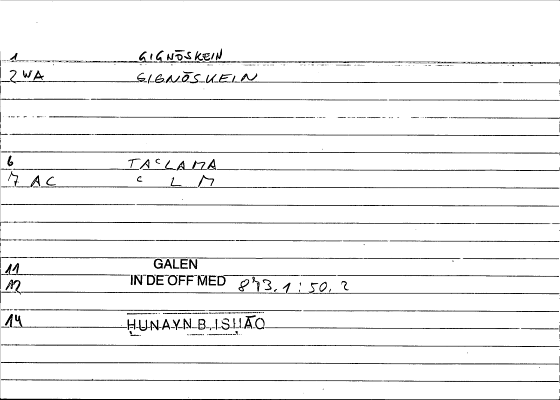 1 GIGNŌSKEIN
2 WA GIGNŌSKEIN
6 TAᶜLAMA
7 AC ᶜ L M
11 GALEN
12 IN DE OFF MED 873.1 : 50.2
14 ḤUNAYN B. ISḤĀQ